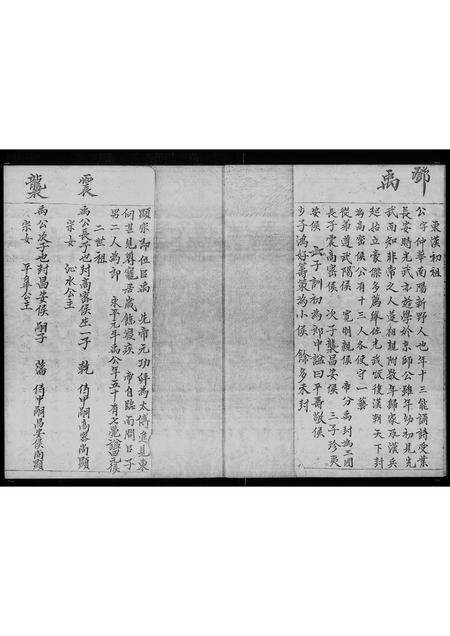 鄧禹
東漢初祖
公字仲華南陽新野人也年十三能誦詩受業
長安時光武亦遊學於京師公雖年幼初見光
武而知非常之人遂相親附數年歸家及漢兵
起始立豪傑多薦舉佐光武恢復漢朝天下封
為高密侯公有十三人各使守一藝
從弟遵武陽侯 寬明親侯 帝分禹封為三國
長子震高密侯 次子襲昌安侯 三子珍夷
安侯 六子訓初為郎中謚曰平壽敬侯
少子鴻好籌策為小侯 餘多未封
顯宗即位臣禹 先帝元功拜為太傅進見東
向甚見尊寵居歲餘寢疾 帝自臨而問曰子
男二人為郎 永平元年禹公年五十有七薨謚曰元侯
二世祖
震
禹公長子也封高密侯生一子 乾 侍中嗣高密尚顯
宗女 沁水公主
襲
禹公次子也封昌安侯嗣子 藩 侍中嗣昌安侯尚顯
宗女 平皋公主